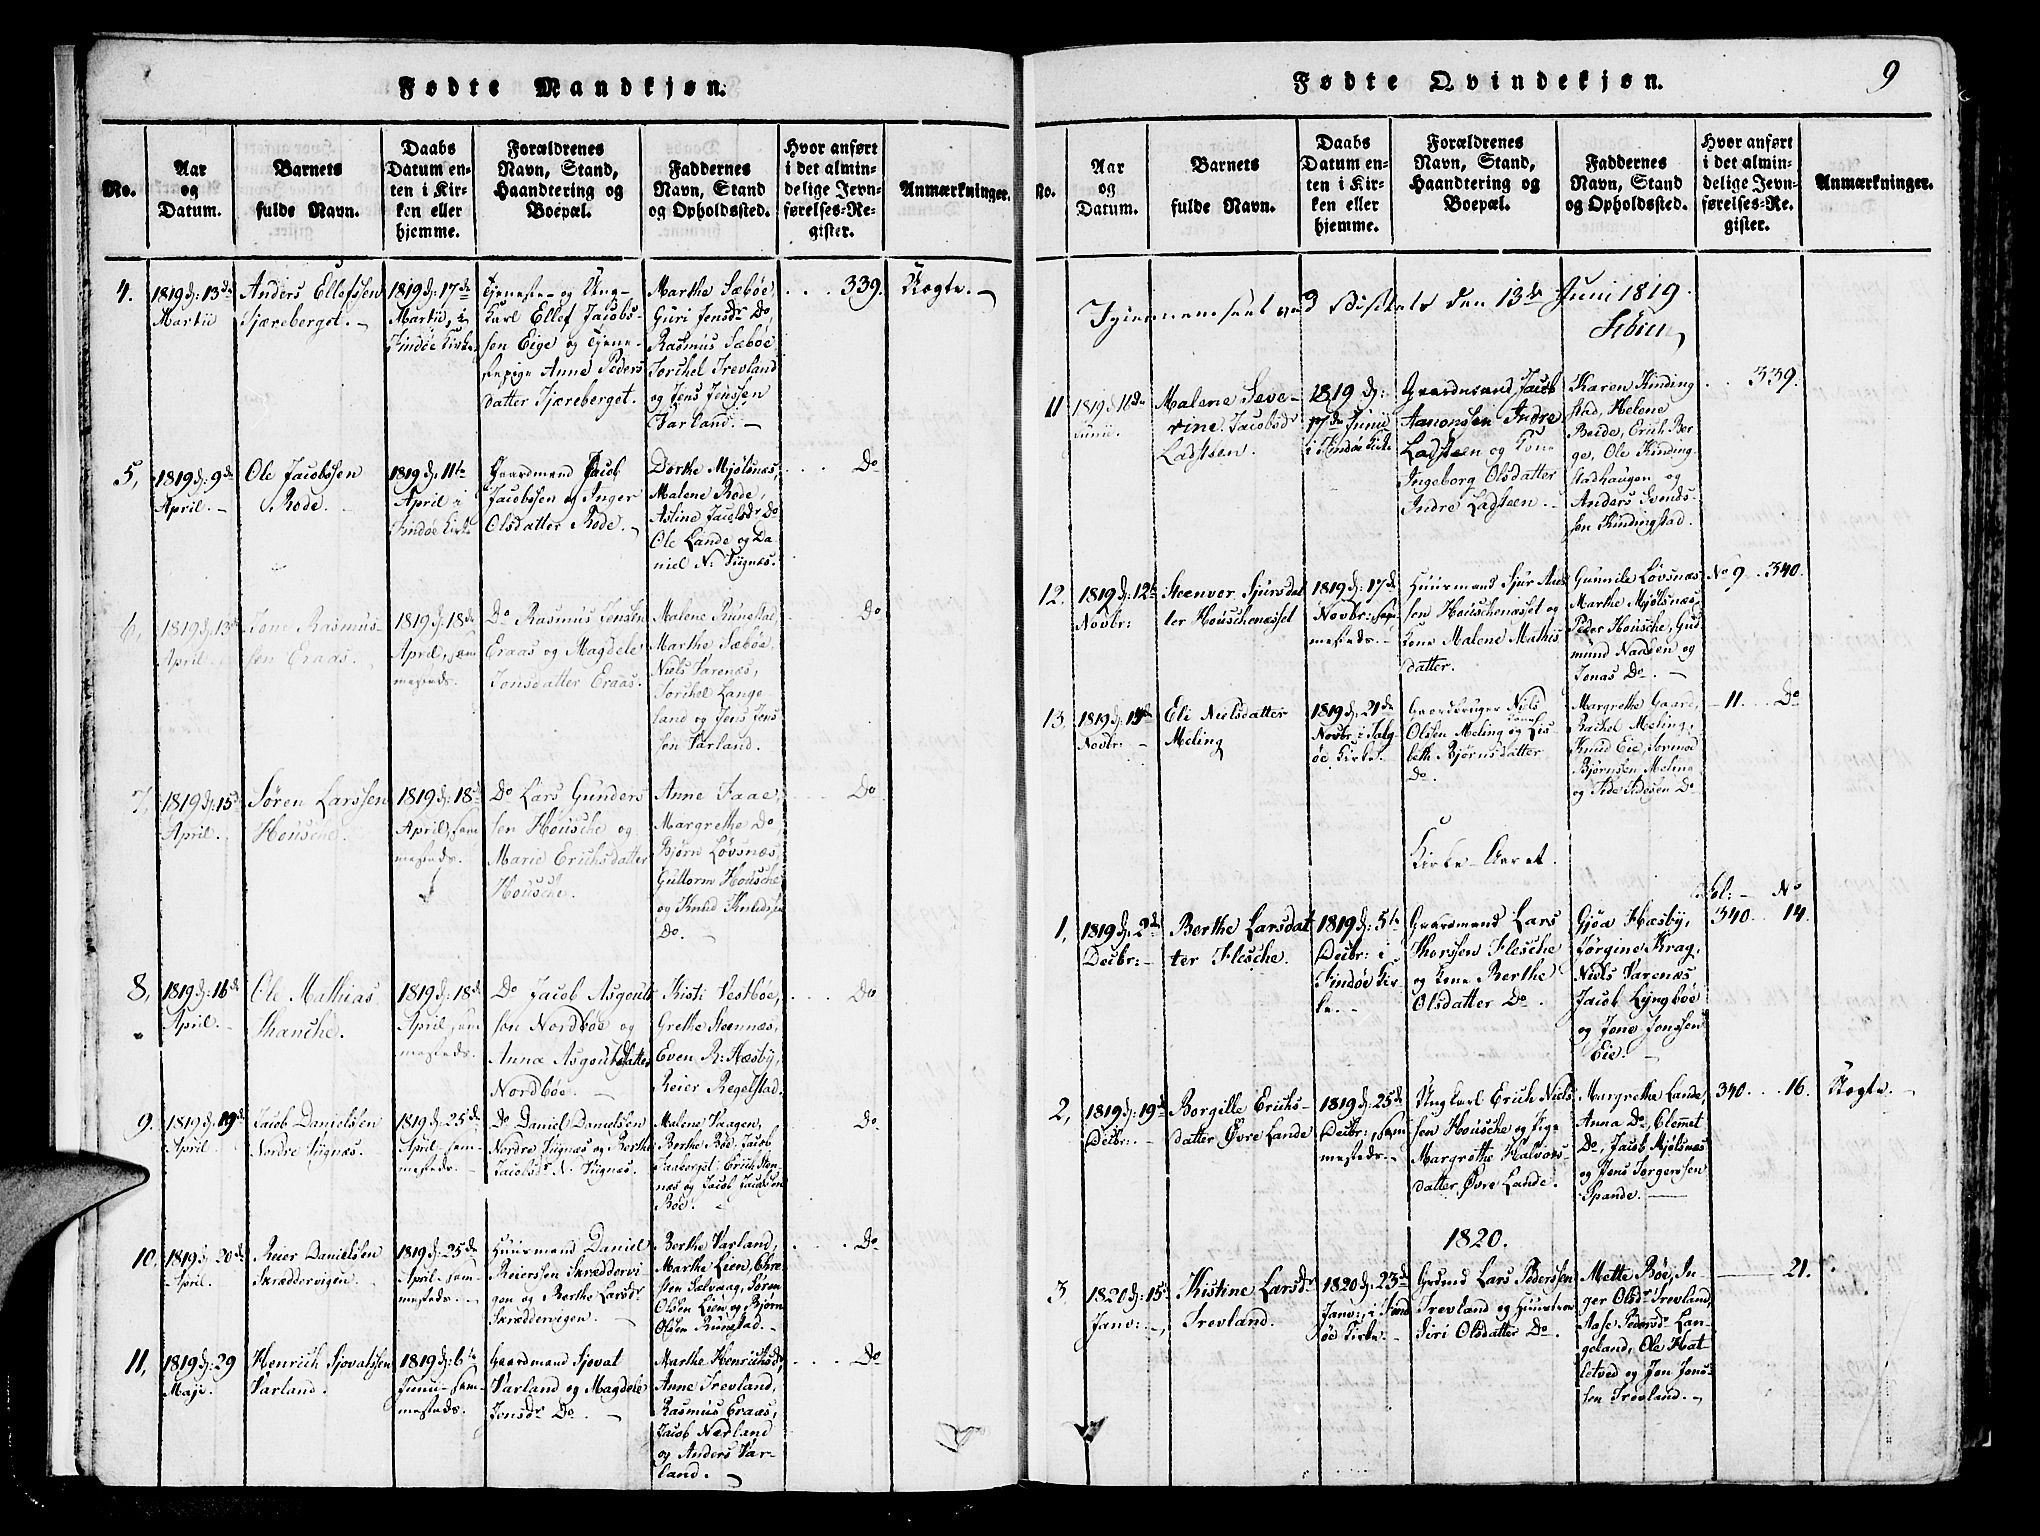 Fødte Mandkjøn.
No.
Aar
og
Datum.
Barnets
fulde Navn.
Daabs
Datum en-
ten i Kir-
ken eller
hjemme.
Forældrenes
Navn, Stand,
Haandtering og
Boepæl.
Faddernes
Navn, Stand
og Opholdssted.
Hvor anført
i det almin-
delige Jevn-
førelses-Re-
gister.
Anmærkninger.
4.
1819 d: 13de
Martii
Anders Ellefssen
Tjæreberget.
1819 d: 17de
Martii, i
Findøe Kirke
Tjeneste- og Ung-
Karl Ellef Jacobs-
sen Eige og Tjene-
stepige Anne Peders
datter Tjæreberget.
Marthe Sæbøe,
Guri Jensdr Do,
Rasmus Sæbøe
Torchel Trevland
og Jens Jenssen
Varland.
339.
Uægte.
5,
1819 d: 9de
April.
Ole Jacobssen
Rode.
1819 d: 11te
April i
Findøe Kirke
Gaardmand Jacob
Jacobssen og Inger
Olsdatter Rode.
Dorthe Mjølsnæs,
Malene Rode,
Astine Jacobsdr Do
Ole Lande og Da
niel N: Vignæs.
Do
6,
1819 d: 13de
April
Tone Rasmus-
sen Eraas.
1819 d: 18de
April, sam
mesteds.
Do Rasmus Jensen
Eraas og Magdele
Jonsdatter Eraas.
Malene Runestad,
Marthe Sæbøe
Niels Varenæs,
Torchel Lange
land og Jens Jens
sen Varland.
Do
7,
1819 d: 15de
April.
Søren Larssen
Housche.
1819 d: 18de
April, sam
mesteds.
Do Lars Gunders
sen Housche og
Marie Erichsdatter
Housche.
Anne Faae,
Margrethe Do,
Bjørn Løvsnæs,
Guttorm Housche
og Knud Knudssen
Do.
Do
8,
1819 d: 16de
April.
Ole Mathias
Hanche.
1819 d: 18de
April, sam
mesteds.
Do Jacob Asgouts
sen Nordbøe og
Anna Asgoutsdatter
Nordbøe.
Kisti Vestbøe,
Grethe Steennæs,
Even R: Hæsby,
Reier Regelstad.
Do
9.
1819 d: 19de
April.
Jacob Danielsen
Nordre Vignæs.
1819 d: 25de
April, sam-
mesteds.
Do Daniel Danielsen
Nordre Vignæs og Berthe
Jacobsdr N. Vignæs.
Malene Vaagen,
Berthe Bøe, Jacob
Erich Sten
næs og Jacob Jacobsen
Bøe.
Do
10.
1819 d: 20de
April.
Reier Danielssen
Skræddervigen
1819 d: 25de
April sam-
mesteds.
Huusmand Daniel
Reierssen Skræddervi
gen og Berthe Larsdr
Skræddervigen.
Berthe Varland,
Marthe Lien, Chre
sten Salvaag, Søren
Olsen Lien og Bjørn
Olsen Runestad.
Do
11,
1819 d: 29
Maji.
Henrich Sjovatssen
Varland.
1819 d: 6te
Junii sam-
mesteds.
Gaardmand Sjovat
Varland og Magdele
Jonsdr Do.
Marthe Henrichsdr
Anne Trevland,
Rasmus Eraas,
Jacob Nærland
og Anders Var-
land.
Do
Fødte Qvindekjøn.
9
No.
Aar
og
Datum.
Barnets
fulde Navn.
Daabs
Datum en-
ten i Kir-
ken eller
hjemme.
Forældrenes
Navn, Stand,
Haandtering og
Boepæl.
Faddernes
Navn, Stand
og Opholdssted.
Hvor anført
i det almin-
delige Jevn-
førelses-Re-
gister.
Anmærkninger.
Igiennemseet ved Visitats den 13de Juni 1819.
11
1819 d: 11de
Junii.
Malene Seve-
rine Jacobsdr
Ladsteen.
1819 d:
17de Junii
i Findøe Kirke
Gaardmand Jacob
Aanonssen Indre
Ladsteen og Kone
Ingeborg Olsdatter
Indre Ladsteen.
Karen Kinding
stad, Helene
Reide, Erich Ber
ge, Ole Kinding
stadhaugen og
Anders Svends-
sen Kindingstad.
339.
12.
1819 d: 12te
Novbr:
Steenvor Sjursdat
ter Houschenæsset
1819 d: 17de
Novbr: sam
mesteds.
Huusmand Sjur Ans
sen Houschenæsset og
Kone Malene Mathis
datter.
Gunnile Løvsnæs
Marthe Mjølsnæs,
Peder Housche, Gud
mund Nadsen og
Jonas Do.
No 9. 340.
13
1819 d: 14de
Novbr:
Eli Nielsdatter
Meling
1819 d: 21de
Novbr: i Talg
øe Kirke.
Gaardbruger Niels
Olsen Meling og Lis
beth Bjørnsdatter
Do.
Margrethe Gaard,
Rachel Meling,
Knud Eie, Tormod
Bjørnsen Meling
og Tede Tedesen Do
11. Do
Kirke-Aaret.
Fol: No
1,
1819 d: 2de
Decbr:
Berthe Larsdat
ter Flesche.
1819 d: 5te
Decbr: i
Findøe Kir
ke.
Gaardmand Lars
Thorssen Flesche
og Kone Berthe
Olsdatter Do.
Gjøa Hæsby,
Jørgine Krag,
Niels Varenæs
Jacob Lyngbøe
og Jone Jonssen
Eie.
340. 14.
2,
1819 d: 19de
Decbr:
Borgille Erichs-
datter Øvre Lande
1819 d: 25de
Decbr: sam
mesteds.
Ungkarl Erich Niels
sen Housche og Pige
Margrethe Halvors-
datter Øvre Lande.
Margrethe Lande,
Anna Do, Clemmet
Do, Jacob Mjølsnæs
og Jens Torgerssen
Spande.
340. 16.
Uægte.
1820.
3.
1820 d: 15de
Janv:
Kistine Larsdr
Trevland.
1820 d: 23de
Janv: i Find
øe Kirke.
Grdmd Lars Pederssen
Trevland og Hustroe
Siri Olsdatter Do.
Mette Bøe, In-
ger Olsdr Trevland,
Aase Pedersdr Lan-
geland, Ole Hat
letved og Jon Jons-
sen Trevland.
21.